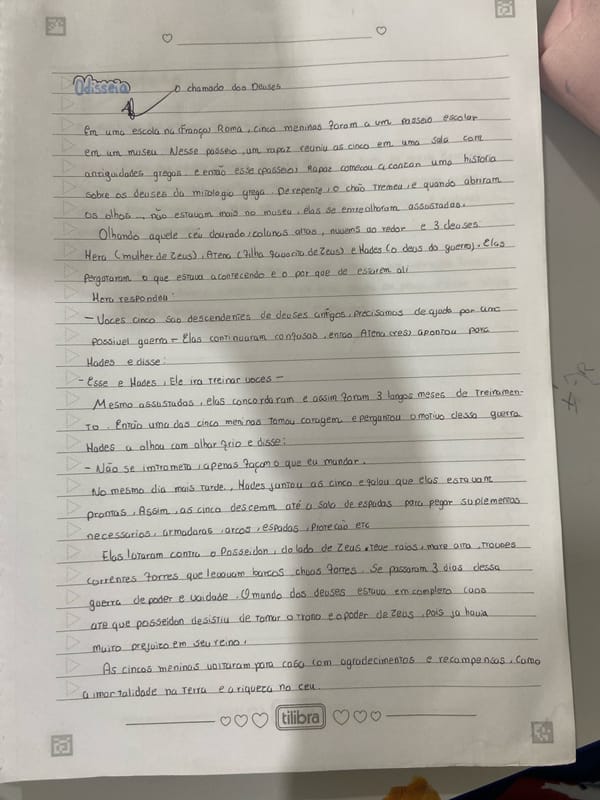 Odisseia O chamado dos Deuses
Em uma escola na (França) Roma, cinco meninas foram a um passeio escolar
em um museu Nesse passeio, um rapaz reuniu as cinco em uma sala com
antiguidades gregas. e então esse (passeio) Rapaz começou a contar uma historia
sobre os deuses da mitologia grega. De repente, o chão tremeu, e quando abriram
os olhos ..., não estavam mais no museu, elas se entreolharam assustadas.
Olhando aquele céu dourado, colunas altas, nuvens ao redor e 3 deuses
Hera (mulher de Zeus), Atena (filha favorita de Zeus) e Hades (o deus da guerra). Elas
perguntaram o que estava acontecendo e o por que de estarem ali
Hera respondeu:
– Voces cinco são descendentes de deuses antigos, precisamos de ajuda por uma
possivel guerra – Elas continuaram confusas, então Atena apontou para
Hades e disse:
– Esse e Hades, Ele ira treinar voces –
Mesmo assustadas, elas concordaram e assim foram 3 longos meses de treinamen-
to. Então uma das cinco meninas tomou coragem e perguntou o motivo dessa guerra
Hades a olhou com olhar frio e disse:
– Não se intrometa, apenas façam o que eu mandar.
No mesmo dia mais tarde, Hades juntou as cinco e falou que elas estavam
prontas, Assim, as cinco desceram até a sala de espadas para pegar suplementos
necessarios, armaduras, arcos, espadas, proteção etc
Elas lutaram contra o Posseidon, do lado de Zeus. teve raios, mare alta, trovoes
correntes fortes que levavam barcos chuvas fortes. Se passaram 3 dias dessa
guerra de poder e vaidade. O mundo dos deuses estava em completo caos
ate que posseidon desistiu de tomar o trono e o poder de Zeus, pois ja havia
muito prejuizo em seu reino.
As cincos meninas voltaram para casa com agradecimentos e recompensas. Como
a imortalidade na terra e a riqueza no ceu.
tilibra